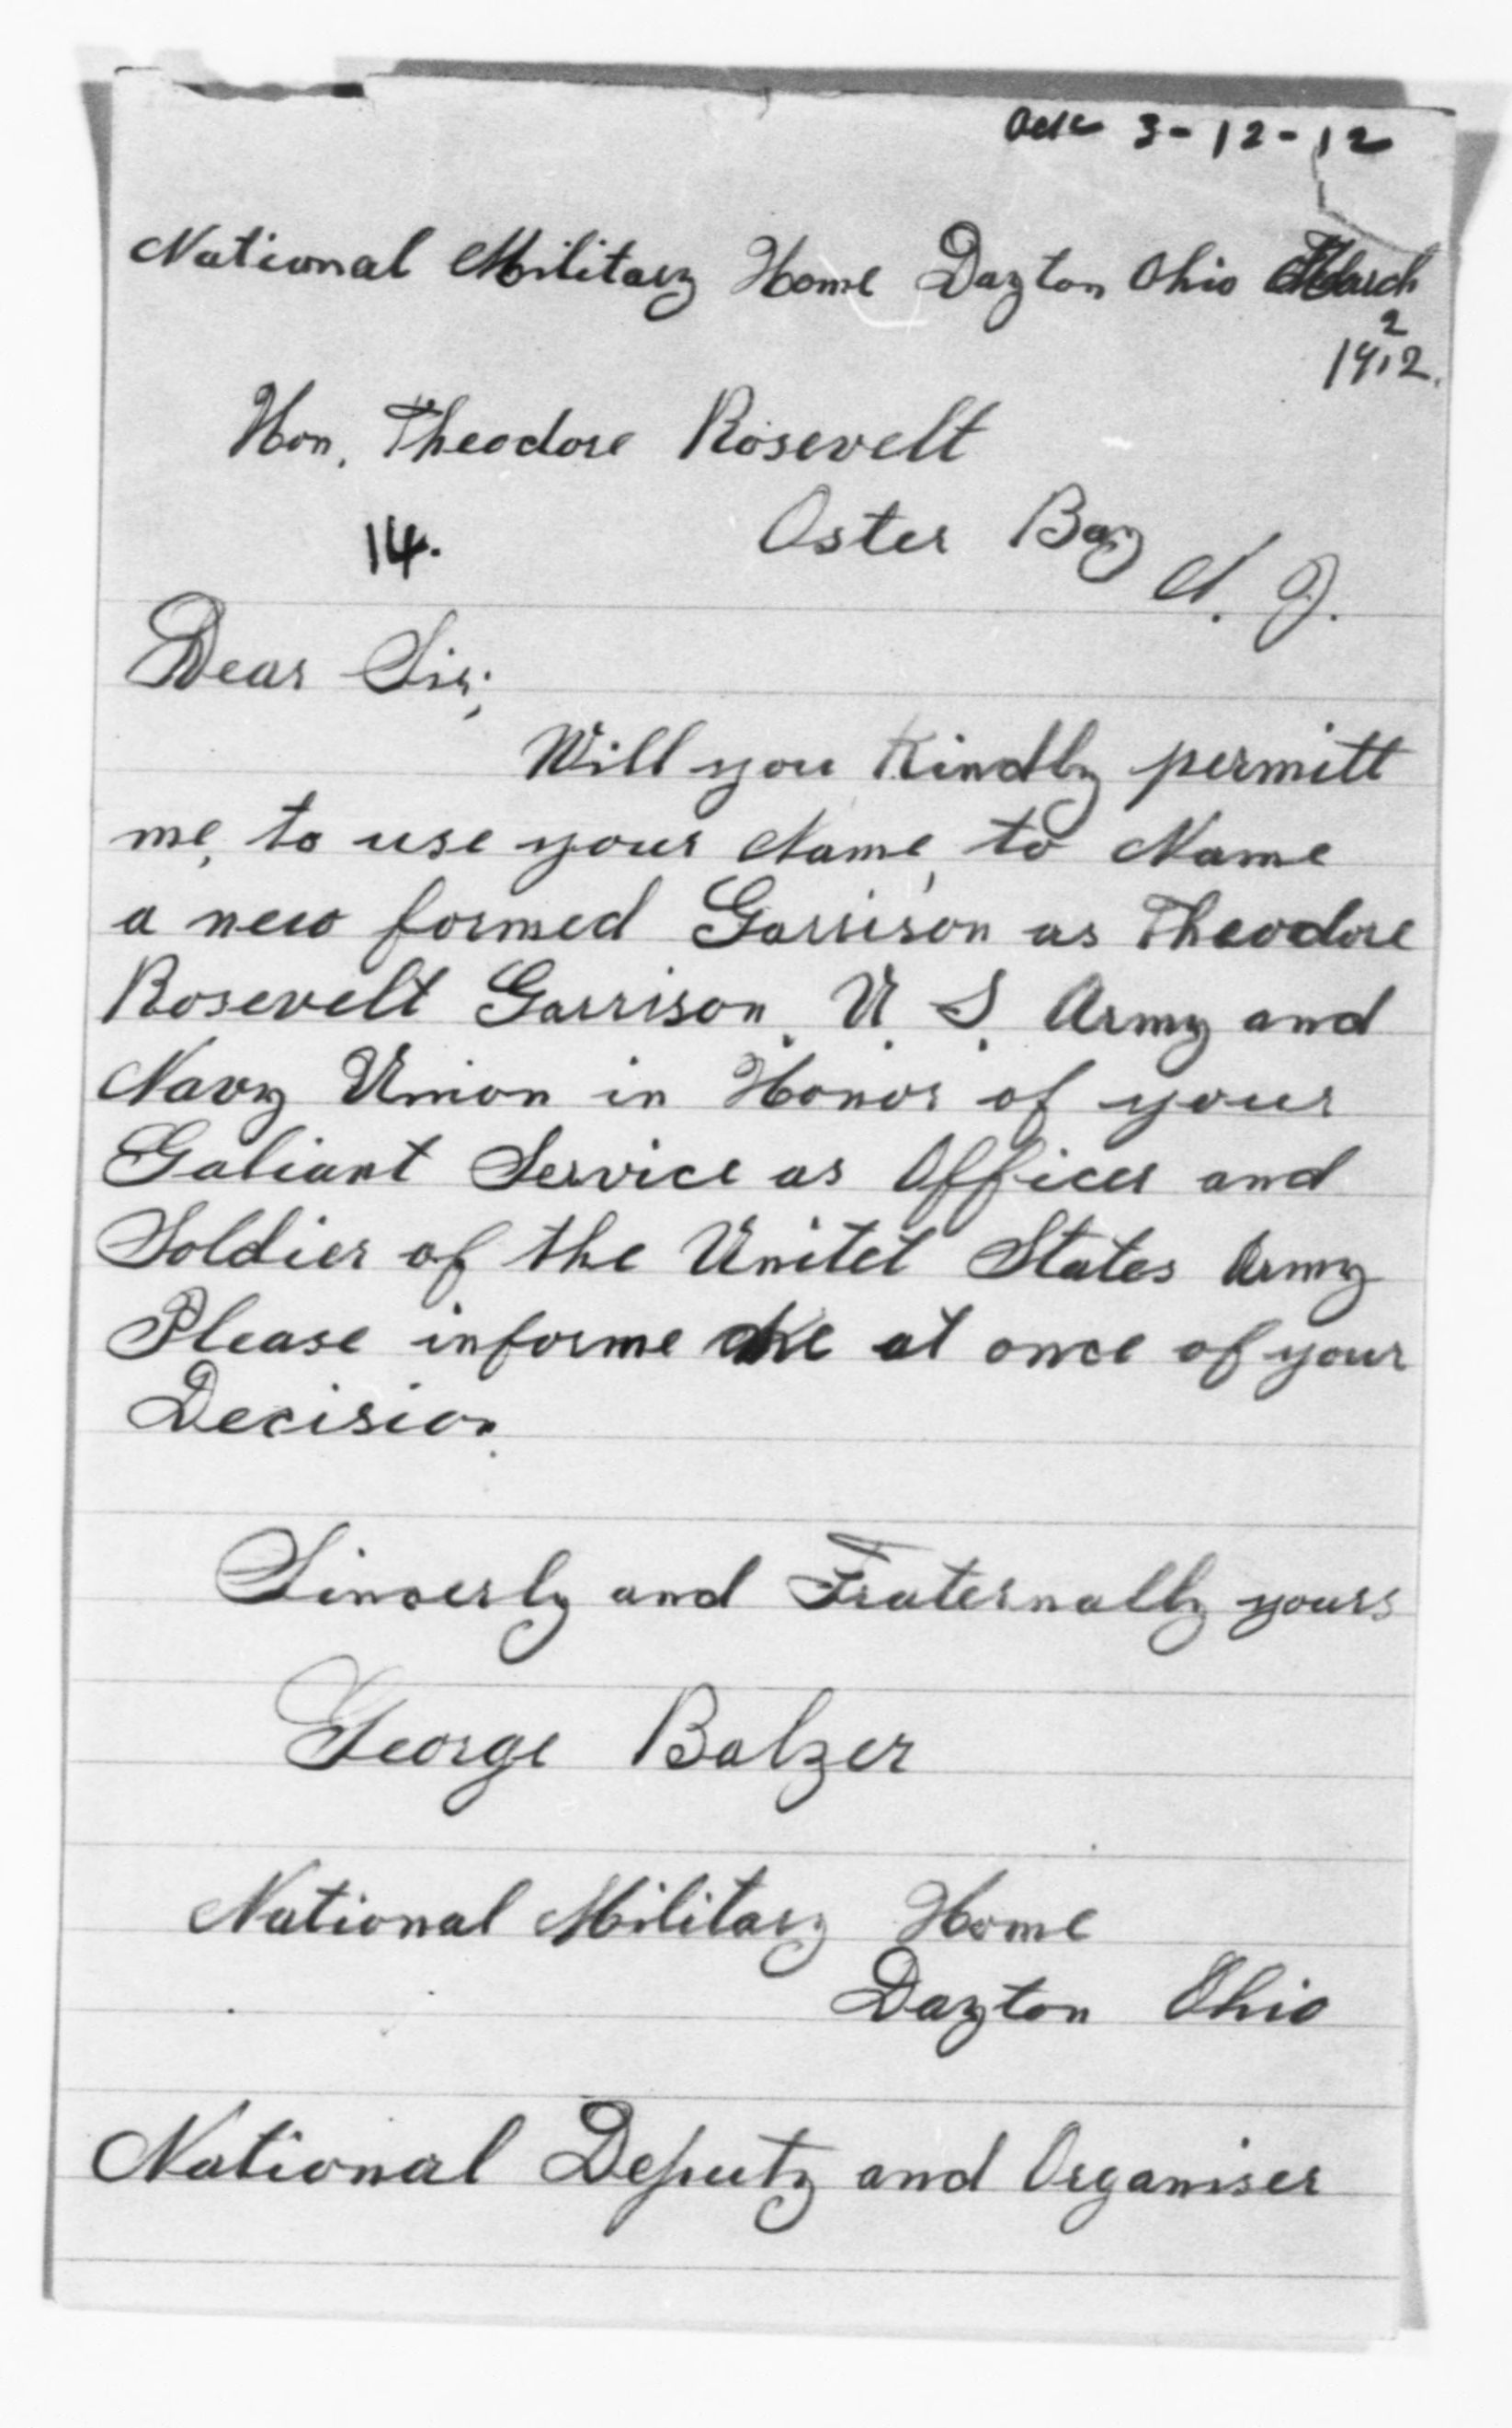 Ack 3-12-12
National Military Home Dayton Ohio March
2
1912.
Hon. Theodore Rosevelt
14.
Oster Bay
N. J.
Dear Sir;
Will you Kindly permitt
me, to use your Name, to Name
a new formed Garrison as Theodore
Rosevelt Garrison. U. S. Army and
Navy Union in Honor of your
Galiant Service as Officer and
Soldier of the Unitet States Army
Please informe Me at once of your
Decision.
Sincerly and Fraternally yours
George Balzer
National Military Home
Dayton Ohio
National Deputy and Organiser